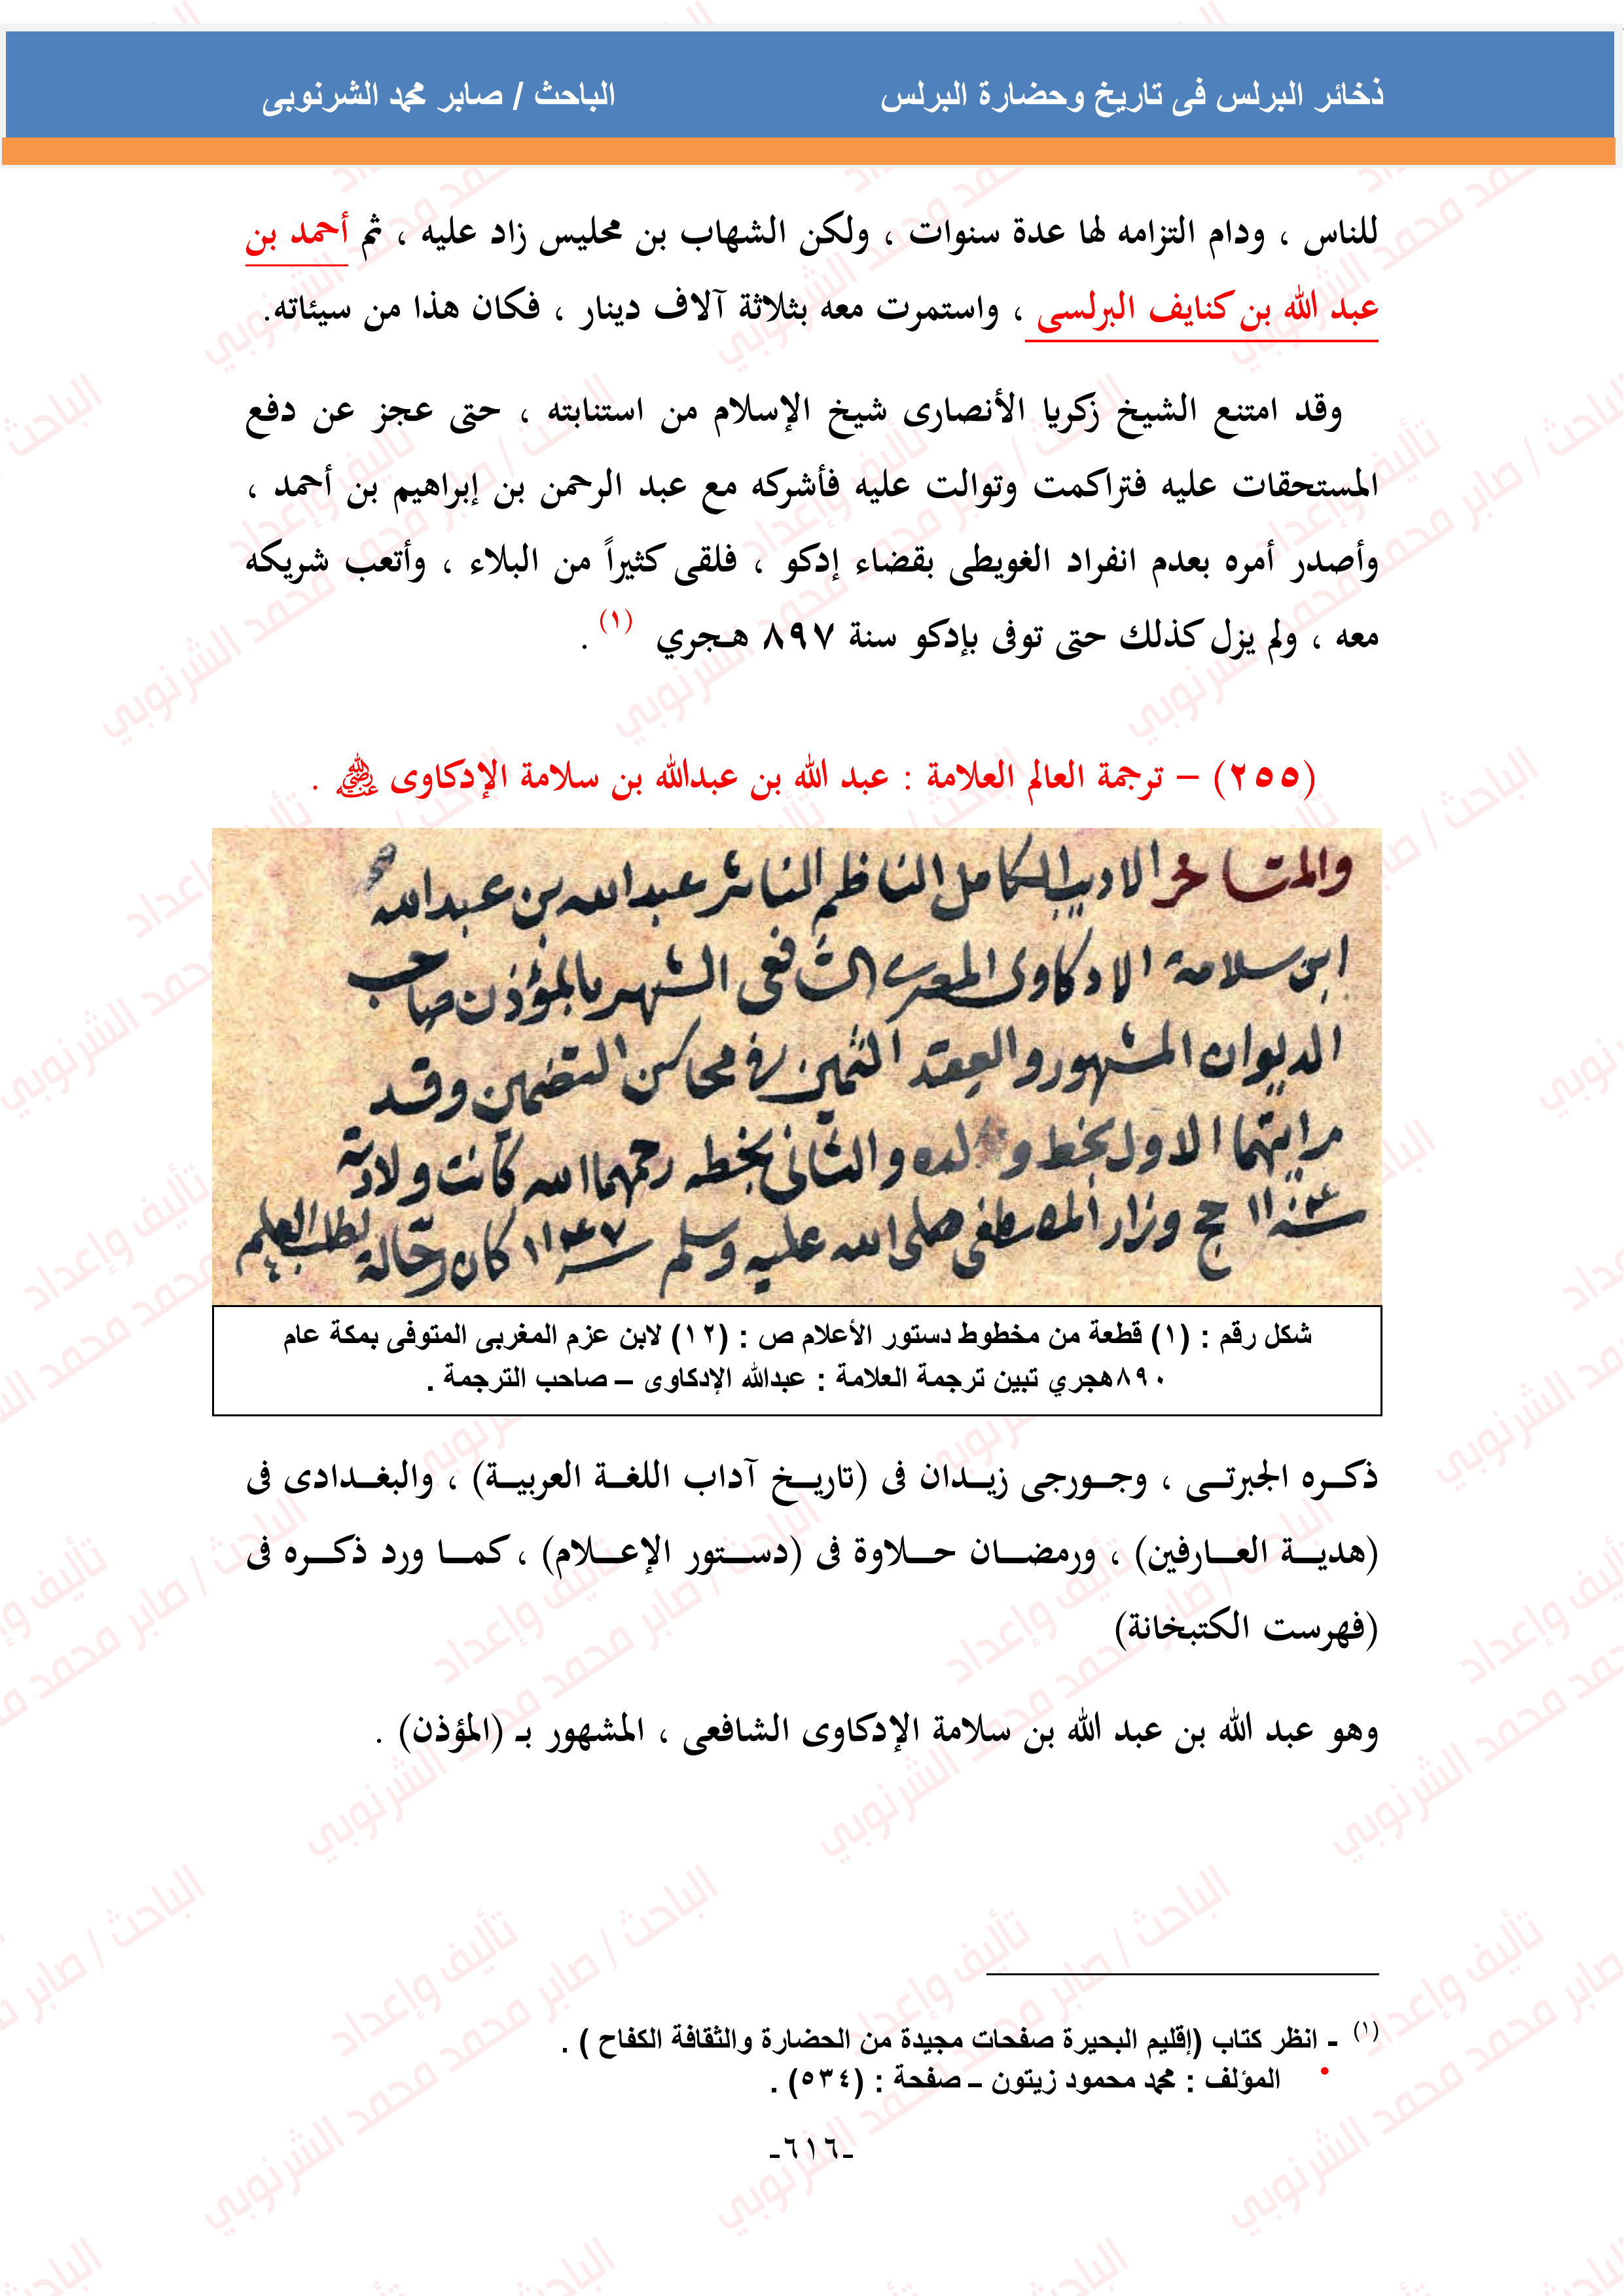 ذخائر البرلس فى تاريخ وحضارة البرلس
الباحث / صابر محمد الشرنوبى
للناس ، ودام التزامه لها عدة سنوات ، ولكن الشهاب بن محليس زاد عليه ، ثم أحمد بن
عبد الله بن كنايف البرلسى ، واستمرت معه بثلاثة آلاف دينار ، فكان هذا من سيئاته.
وقد امتنع الشيخ زكريا الأنصارى شيخ الإسلام من استنابته ، حتى عجز عن دفع
المستحقات عليه فتراكمت وتوالت عليه فأشركه مع عبد الرحمن بن إبراهيم بن أحمد ،
وأصدر أمره بعدم انفراد الغويطى بقضاء إدكو ، فلقى كثيراً من البلاء ، وأتعب شريكه
معه ، ولم يزل كذلك حتى توفى بإدكو سنة ٨٩٧ هـجري (١) .
(٢٥٥) – ترجمة العالم العلامة : عبد الله بن عبدالله بن سلامة الإدكاوى رضي الله عنه .
والمتاخر الاديب الكامل الناظم الناثر عبد الله بن عبد الله
ابن سلامة الادكاوى المصرى الشافعى الشهير بالمؤذن صاحب
الديوان المشهور والعقد الثمين فى محاسن التضمين وقد
رايتهما الاول بخط ولده والثانى بخطه رحمهما الله كانت ولادته
سنة ١١٠٤ حج وزار المصطفى صلى الله عليه وسلم سنة ١١٤٧ كان رحالة لطلب العلم
شكل رقم : (١) قطعة من مخطوط دستور الأعلام ص : (١٢) لابن عزم المغربى المتوفى بمكة عام
٨٩٠هجري تبين ترجمة العلامة : عبدالله الإدكاوى – صاحب الترجمة .
ذكـره الجبرتـى ، وجـورجى زيـدان فى (تاريـخ آداب اللغـة العربيـة) ، والبغـدادى فى
(هديـة العـارفين) ، ورمضـان حـلاوة فى (دسـتور الإعـلام) ، كمـا ورد ذكـره فى
(فهرست الكتبخانة)
وهو عبد الله بن عبد الله بن سلامة الإدكاوى الشافعى ، المشهور بـ (المؤذن) .
(١) - انظر كتاب (إقليم البحيرة صفحات مجيدة من الحضارة والثقافة الكفاح ) .
• المؤلف : محمد محمود زيتون – صفحة : (٥٣٤) .
-٦١٦-
تأليف وإعداد
الباحث / صابر محمد محمد الشرنوبي